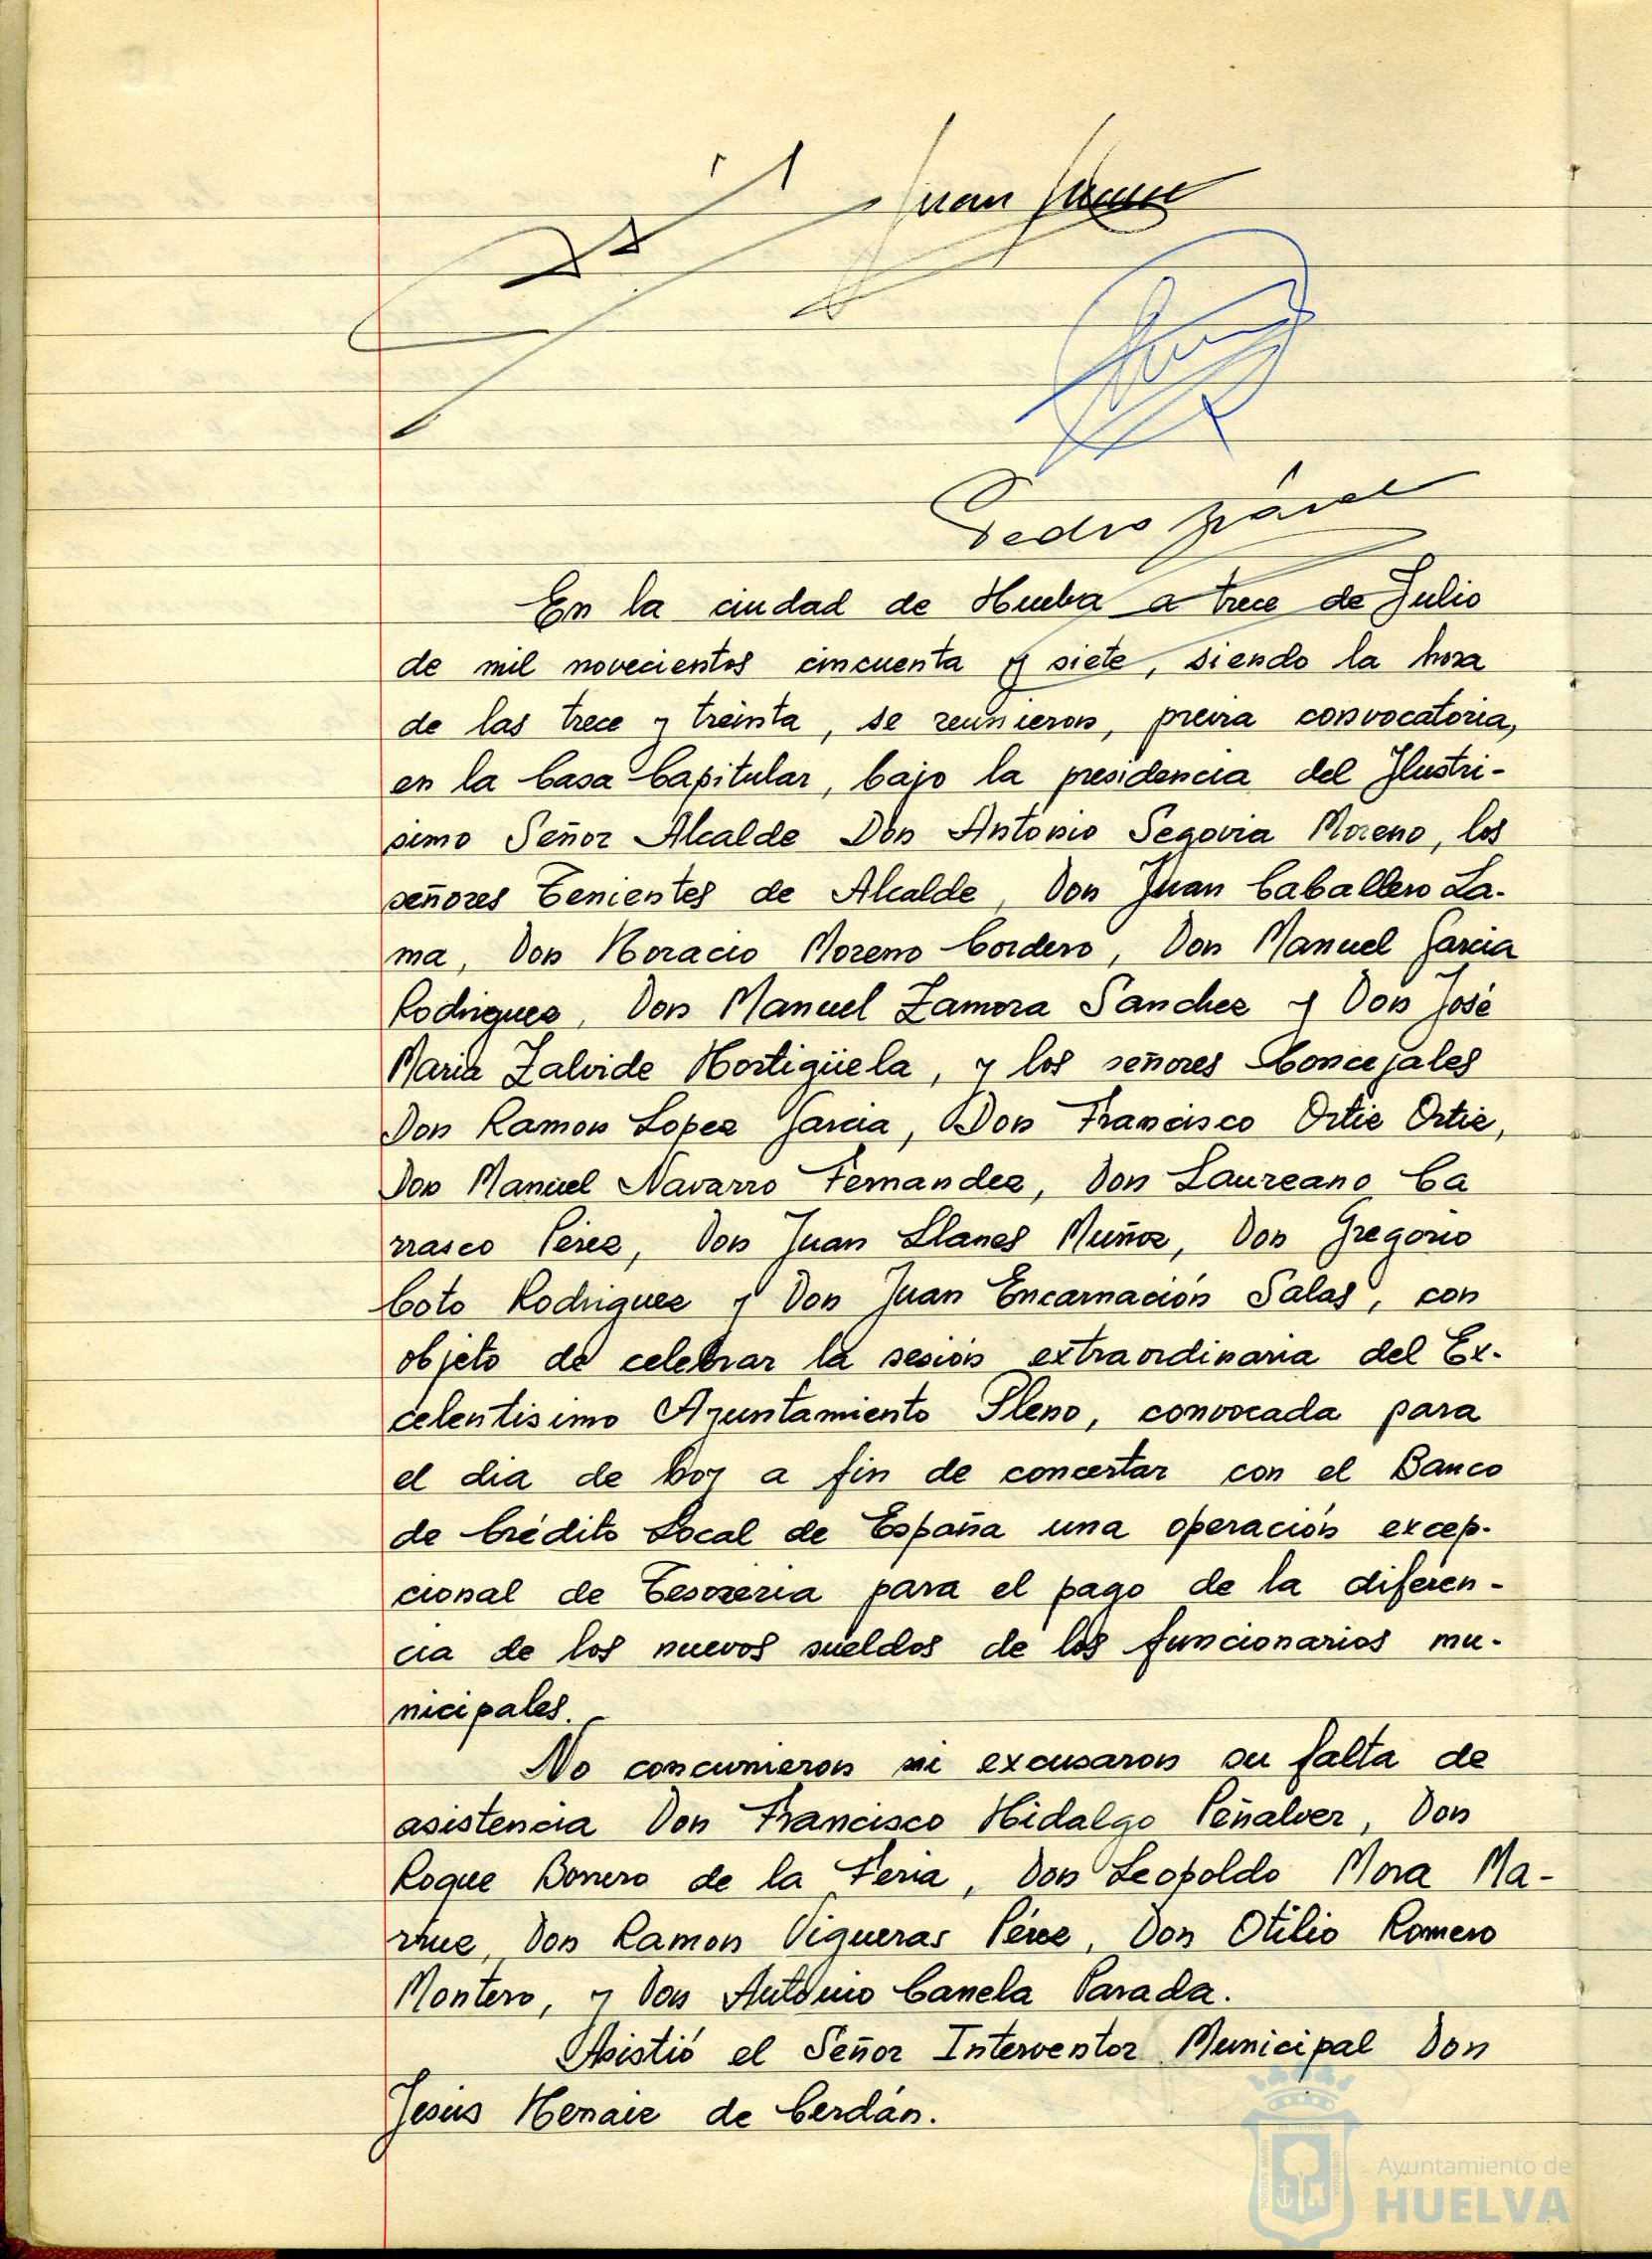 Juan
Pedro
En la ciudad de Huelva a trece de Julio
de mil novecientos cincuenta y siete, siendo la hora
de las trece y treinta, se reunieron, previa convocatoria,
en la Casa Capitular, bajo la presidencia del Ilustri-
simo Señor Alcalde Don Antonio Segovia Moreno, los
señores Tenientes de Alcalde, Don Juan Caballero La-
ma, Don Horacio Moreno Cordero, Don Manuel Garcia
Rodriguez, Don Manuel Zamora Sanchez y Don José
Maria Zalvide Hortigüela, y los señores Concejales
Don Ramon Lopez Garcia, Don Francisco Ortiz Ortiz,
Don Manuel Navarro Fernandez, Don Laureano Ca
rrasco Pérez, Don Juan Llanes Muñoz, Don Gregorio
Coto Rodriguez y Don Juan Encarnación Salas, con
objeto de celebrar la sesión extraordinaria del Ex-
celentisimo Ayuntamiento Pleno, convocada para
el dia de hoy a fin de concertar con el Banco
de Crédito Local de España una operación excep-
cional de Tesoreria para el pago de la diferen-
cia de los nuevos sueldos de los funcionarios mu-
nicipales.
No concurrieron ni excusaron su falta de
asistencia Don Francisco Hidalgo Peñalver, Don
Roque Borrero de la Feria, Don Leopoldo Mora Ma-
rruz, Don Ramon Vigueras Pérez, Don Otilio Romero
Montero, y Don Antonio Canela Parada.
Asistió el Señor Interventor Municipal Don
Jesús de Cerdán.
Ayuntamiento de
HUELVA